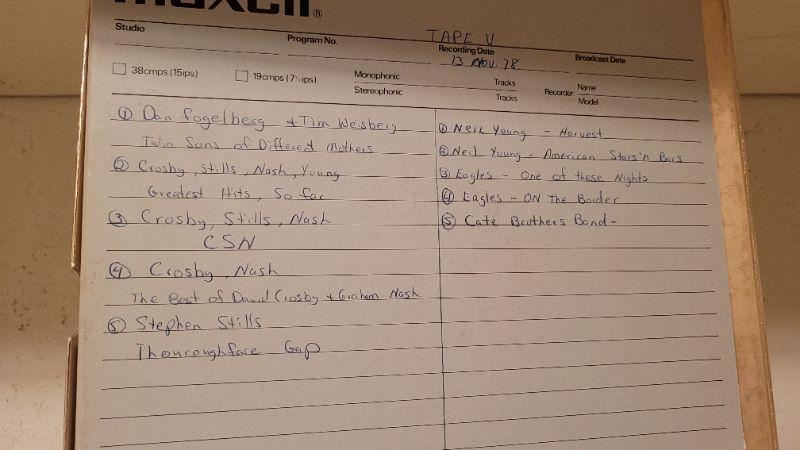 maxell®
Studio
Program No.
TAPE V
Recording Date
13 NOV. 78
Broadcast Date
38cmps (15ips)
19cmps (7½ips)
Monophonic
Stereophonic
Tracks
Tracks
Recorder
Name
Model
① Dan Fogelberg & Tim Weisberg
Twin Sons of Different Mothers
② Crosby, Stills, Nash, Young
Greatest Hits, So far
③ Crosby, Stills, Nash
CSN
④ Crosby, Nash
The Best of David Crosby & Graham Nash
⑤ Stephen Stills
Thouroughface Gap
① Neil Young - Harvest
② Neil Young - American Stars'n Bars
③ Eagles - One of these Nights
④ Eagles - ON The Border
⑤ Cate Brothers Band -